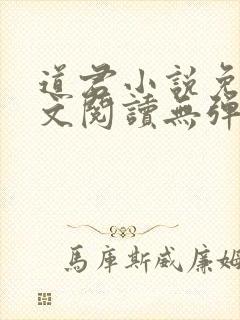 道君小說免
文閱讀無彈
馬庫斯威廉姆